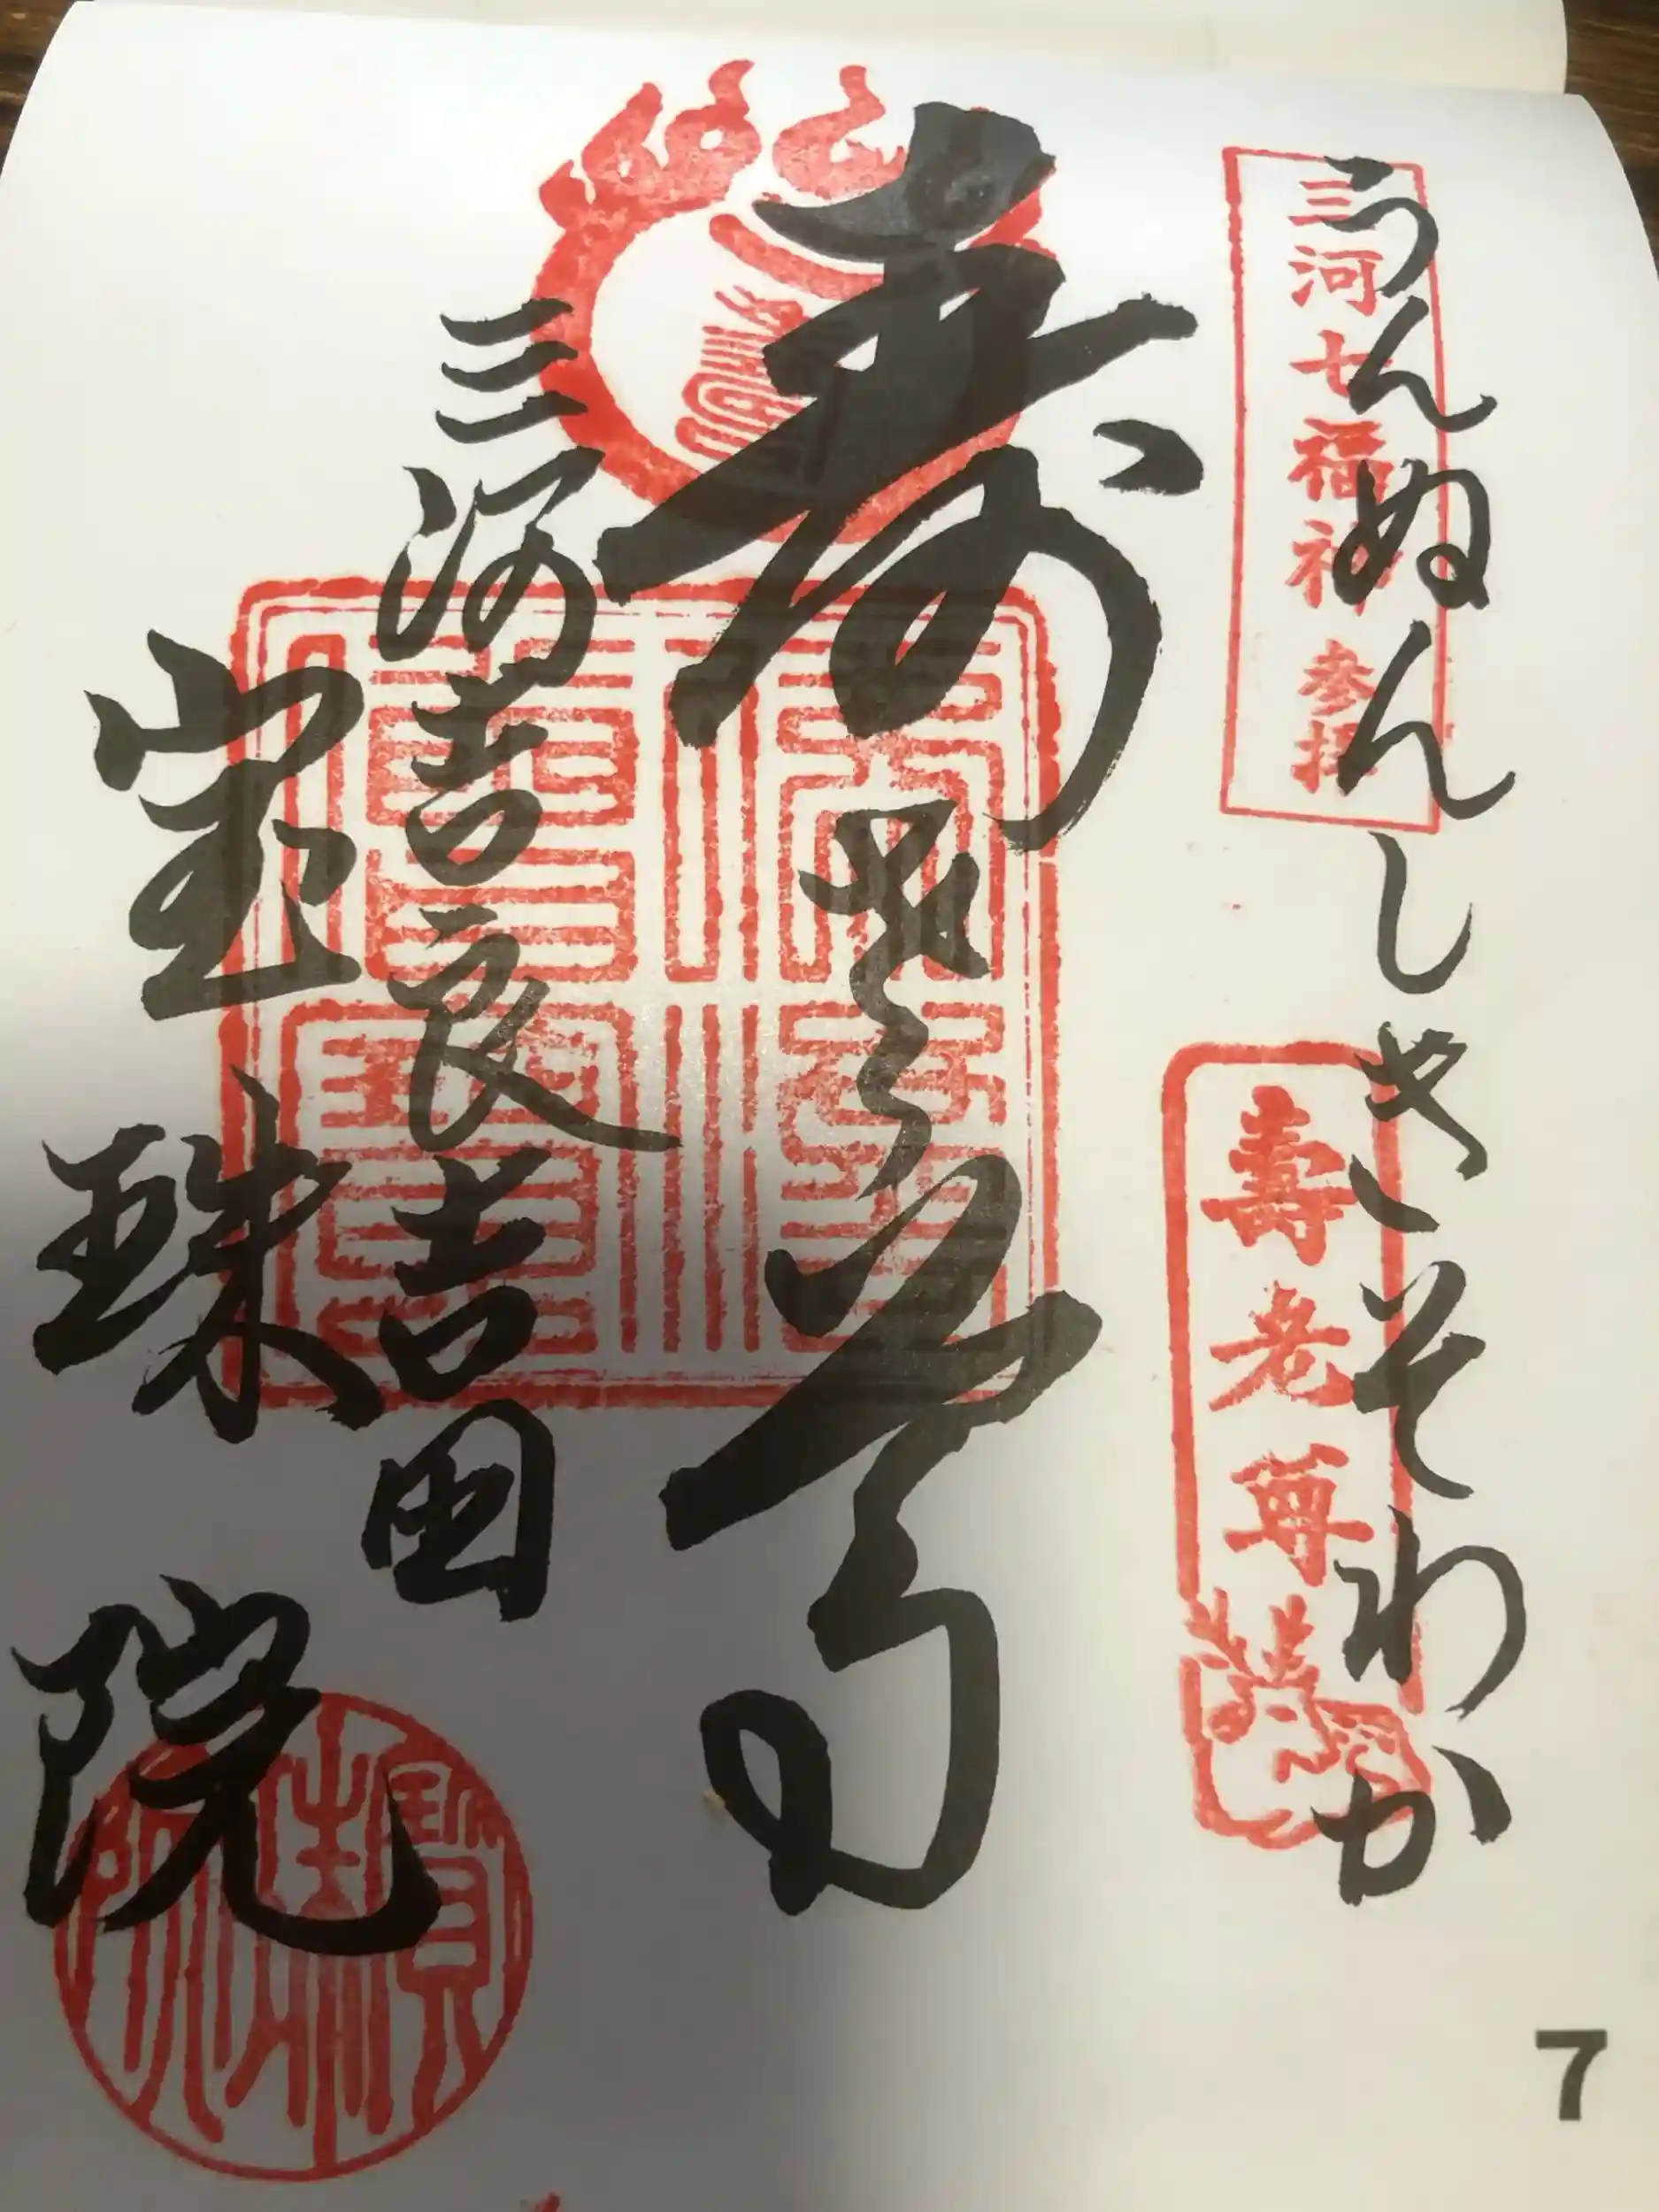 うんぬんしきそわか
三河七福神参拝
壽老尊
寿老尊
三河吉良吉田
宝珠院
寶珠院
7